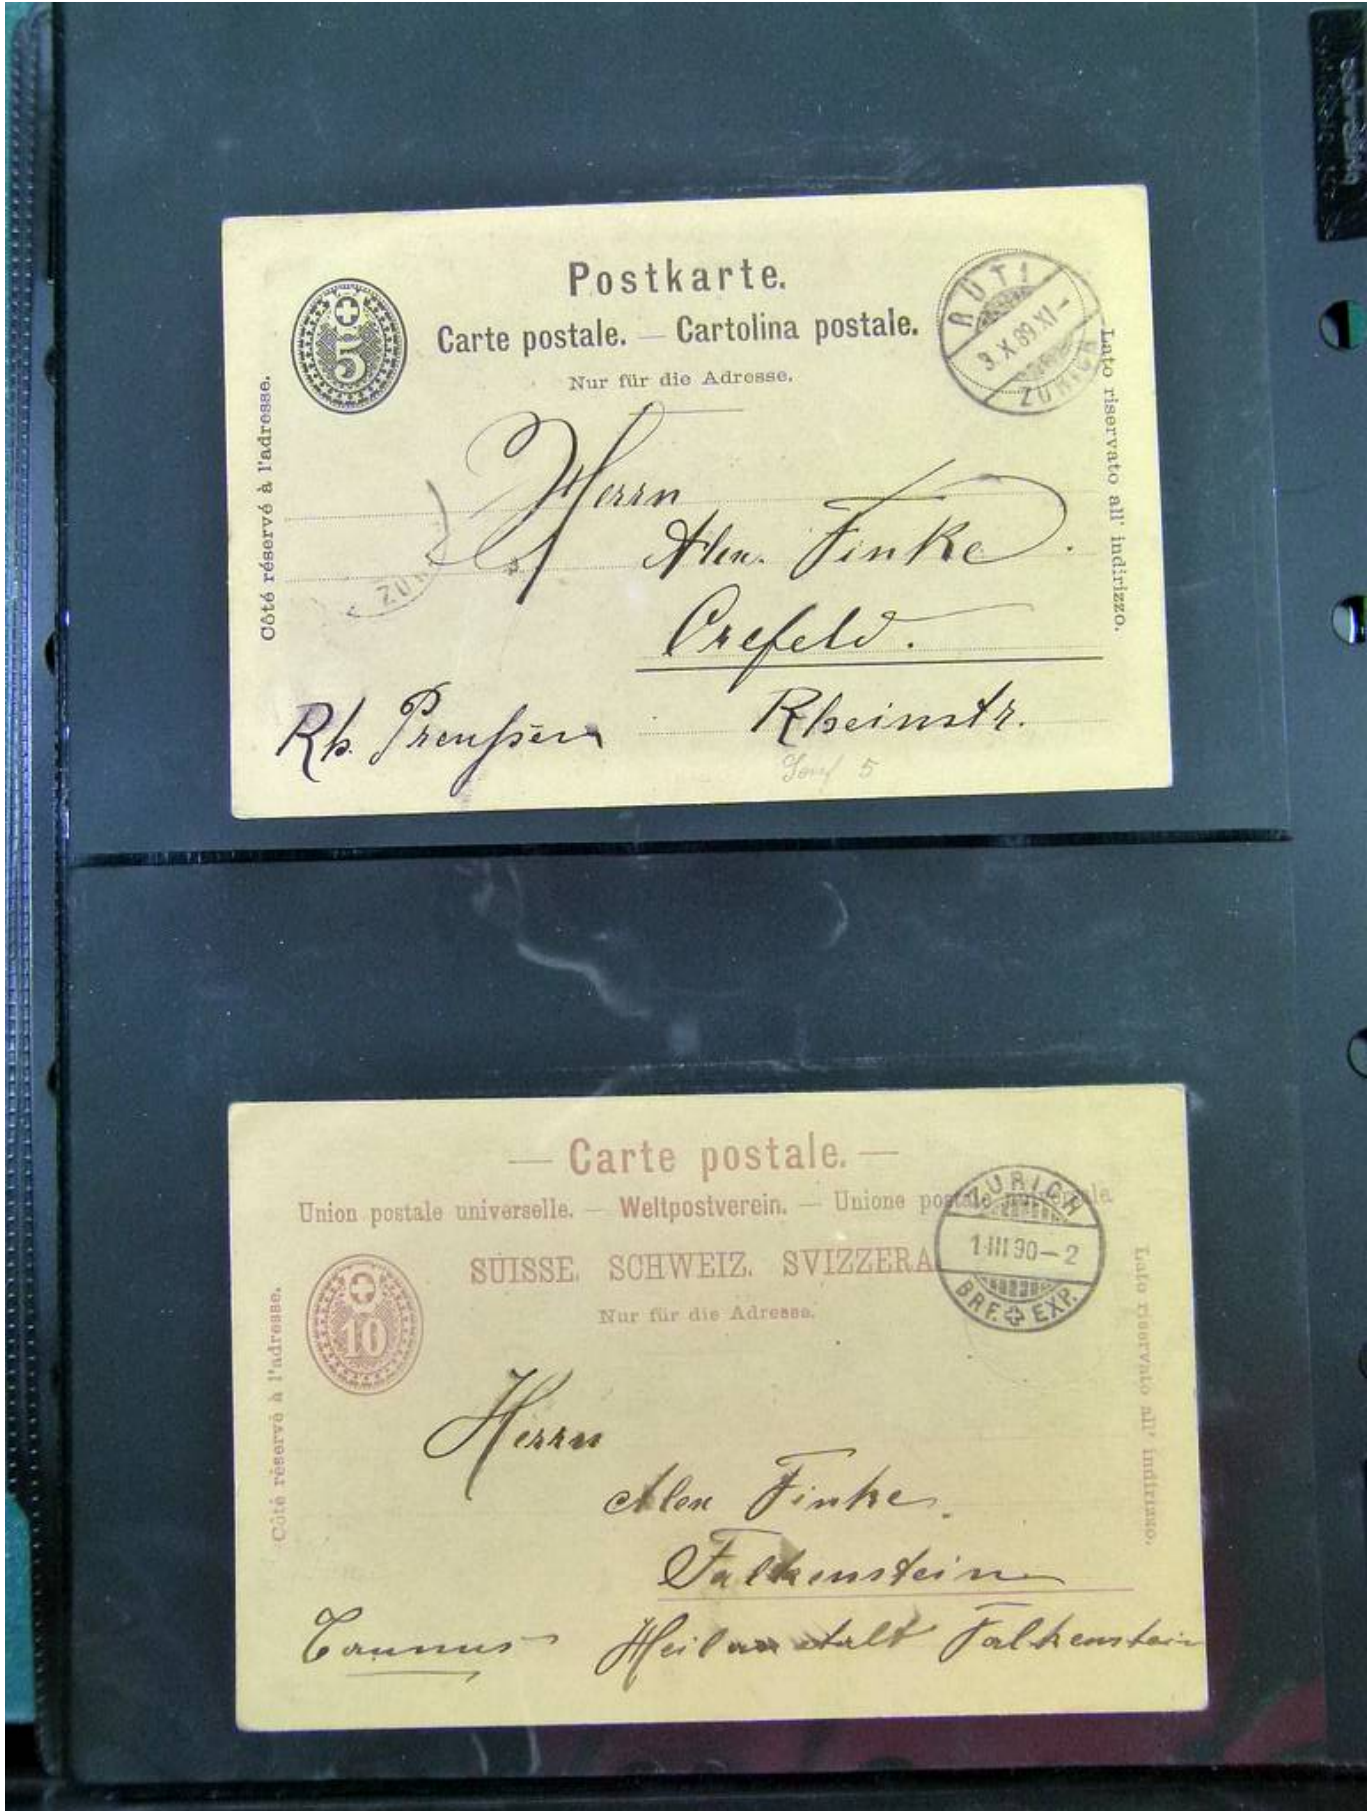 Postkarte.
Carte postale. — Cartolina postale.
Nur für die Adresse.
5
RÜTI
3.X.89.XI-
ZÜRICH
Côté réservé à l'adresse.
Lato riservato all' indirizzo.
Herrn
Alex. Finke.
Crefeld.
Rh. Preußen
Rheinstr.
ZÜR
5
— Carte postale. —
Union postale universelle. — Weltpostverein. — Unione postale universale.
SUISSE. SCHWEIZ. SVIZZERA.
Nur für die Adresse.
10
ZÜRICH
1 III 90-2
BRF. EXP.
Côté réservé à l'adresse.
Lato riservato all' indirizzo.
Herrn
Alex Finke.
Falkenstein
Taunus
Heilanstalt Falkenstein